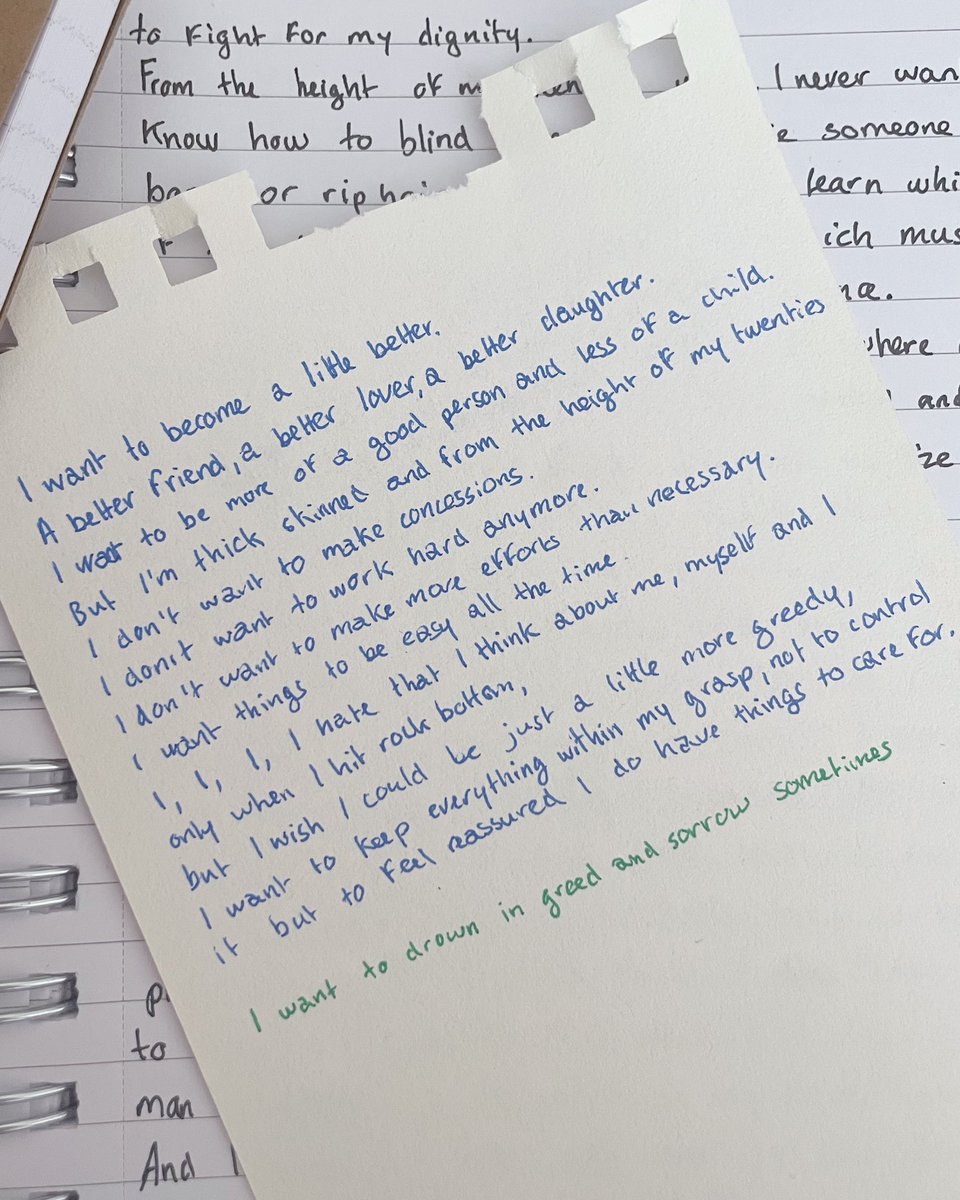 to fight for my dignity.
From the height of my I never wan
Know how to blind someone
or rip learn whi
ich mus
where
and
I want to become a little better.
A better friend, a better lover, a better daughter.
I want to be more of a good person and less of a child.
But I'm thick skinned and from the height of my twenties
I don't want to make concessions.
I don't want to work hard anymore.
I don't want to make more efforts than necessary.
I want things to be easy all the time.
I, I, I, I hate that I think about me, myself and I
only when I hit rock bottom,
but I wish I could be just a little more greedy,
I want to keep everything within my grasp, not to control
it but to feel reassured I do have things to care for.
I want to drown in greed and sorrow sometimes
to
man
And I